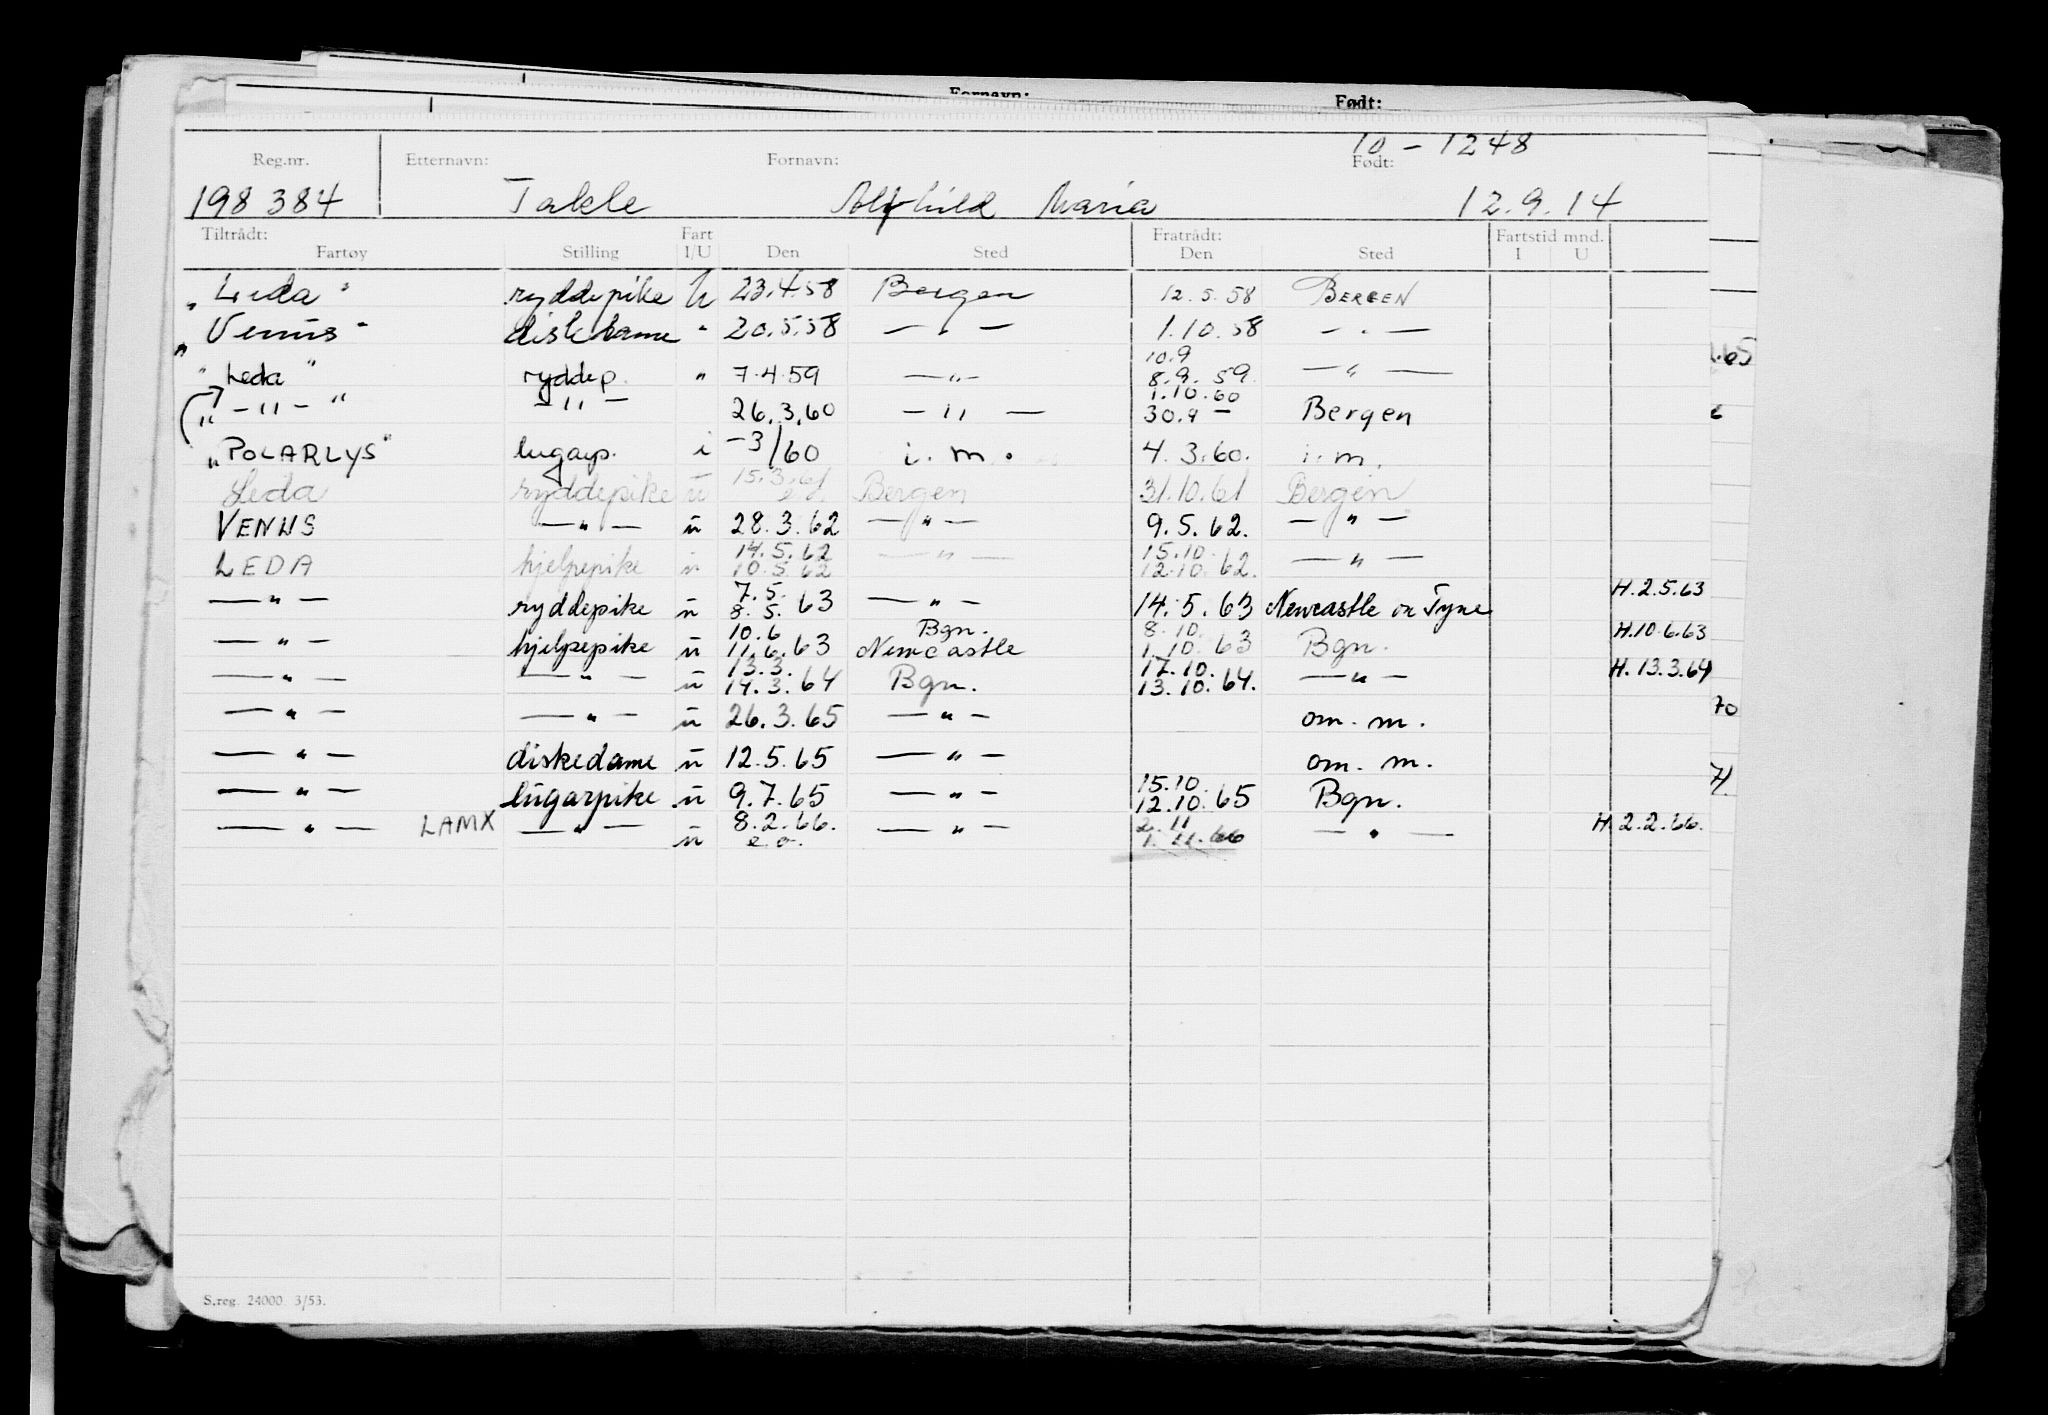 Fornavn: Født:
10 - 1248
Reg.nr. Etternavn: Fornavn: Født:
198 384 Takle Alfhild Maria 12.9.14
Tiltrådt: Fart Fratrådt: Fartstid mnd.
Fartøy Stilling I/U Den Sted Den Sted I U
"Leda" ryddepike U 23.4.58 Bergen 12.5.58 BERGEN
"Venus" diskedame " 20.5.58 — " — 1.10.58 — " —
10.9
"Leda" ryddep. " 7.4.59 — " — 8.9.59 — " —
1.10.60
" — " — " — " — 26.3.60 — " — 30.9 — Bergen
"POLARLYS" lugarp. i -3/60 i.m. 4.3.60. i.m.
15.3.61
Leda ryddepike u Bergen 31.10.61 Bergen
VENUS — " — u 28.3.62 — " — 9.5.62. — " —
14.5.62 15.10.
LEDA hjelpepike u 10.5.62 — " — 12.10.62. — " —
7.5. H.2.5.63
— " — ryddepike u 8.5.63 — " — 14.5.63 Newcastle on Tyne
10.6 Bgn. 8.10. H.10.6.63
— " — hjelpepike u 11.6.63 Newcastle 1.10.63 Bgn.
13.3. 17.10. H.13.3.64
— " — — " — u 14.3.64 Bgn. 13.10.64. — " —
— " — — " — u 26.3.65 — " — om. m.
— " — diskedame u 12.5.65 — " — om. m.
15.10.
— " — lugarpike u 9.7.65 — " — 12.10.65 Bgn.
— " — LAMX — " — u 8.2.66. — " — 2.11 — " — H.2.2.66.
e.o. 1.11.66
S.reg. 24000. 3/53.